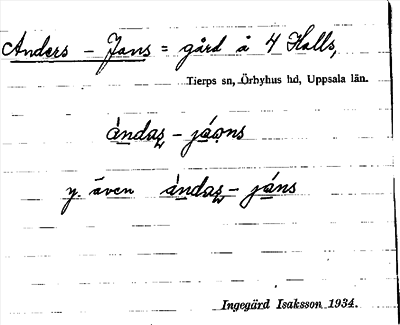 Anders – Jans = gård å 4 Halls,
Tierps sn, Örbyhus hd, Uppsala län.
àndas̱ – jáo̱ns
y. även àndas̱ – jáns
Ingegärd Isaksson 1934.